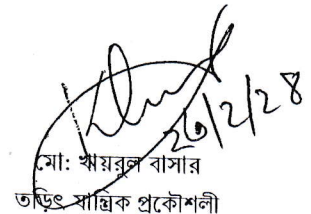 মো: খায়রুল বাসার
তড়িৎ যান্ত্রিক প্রকৌশলী